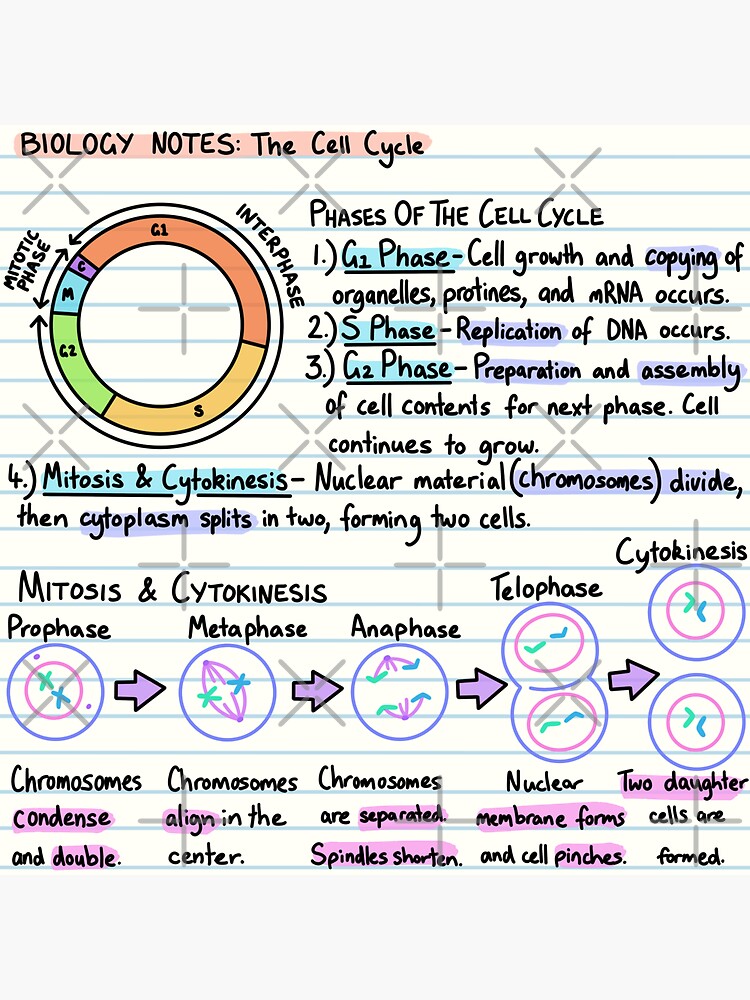 BIOLOGY NOTES: The Cell Cycle
MITOTIC
PHASE
INTERPHASE
G1
C
M
G2
S
PHASES OF THE CELL CYCLE
1.) G1 Phase- Cell growth and copying of
organelles, protines, and mRNA occurs.
2.) S Phase - Replication of DNA occurs.
3.) G2 Phase- Preparation and assembly
of cell contents for next phase. Cell
continues to grow.
4.) Mitosis & Cytokinesis- Nuclear material (chromosomes) divide,
then cytoplasm splits in two, forming two cells.
MITOSIS & CYTOKINESIS
Prophase
Metaphase
Anaphase
Telophase
Cytokinesis
Chromosomes
condense
and double.
Chromosomes
align in the
center.
Chromosomes
are separated.
Spindles shorten.
Nuclear
membrane forms
and cell pinches.
Two daughter
cells are
formed.